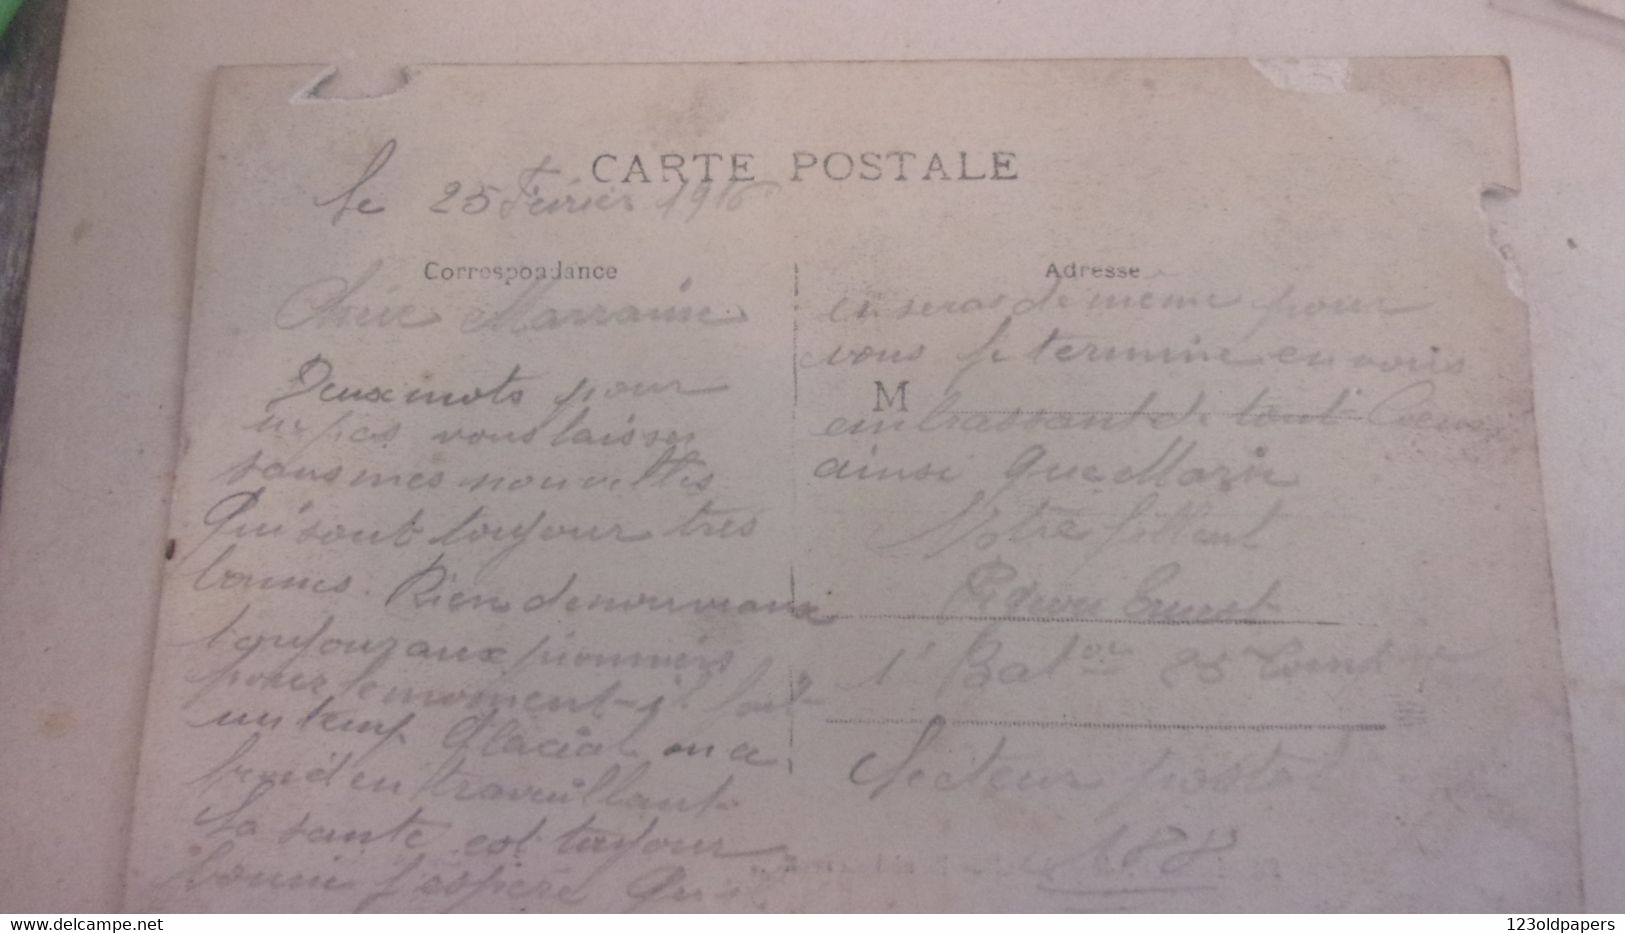 CARTE POSTALE
Le 25 Février 1916
Correspondance
Chère Marraine
Deux mots pour
ne pas vous laisser
sans mes nouvelles
Qui sont toujour très
bonnes. Rien de nouveaux
toujour aux pionniers
pour le moment il fait
un temp Glacial on a
froid en travaillant
La santé est toujour
bonne j'espère Qu'il
Adresse
en seras de même pour
vous Je termine en vous
M
embrassant de tout Coeur
ainsi que Marie
Votre filleul
Ernest
1er Bat on 25e Comp
Secteur postal
188
123oldpapers
delcampe.net